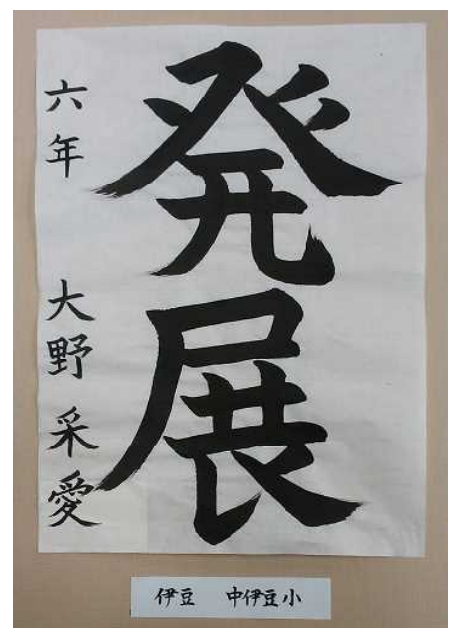 発展
六年 大野采愛
伊豆 中伊豆小